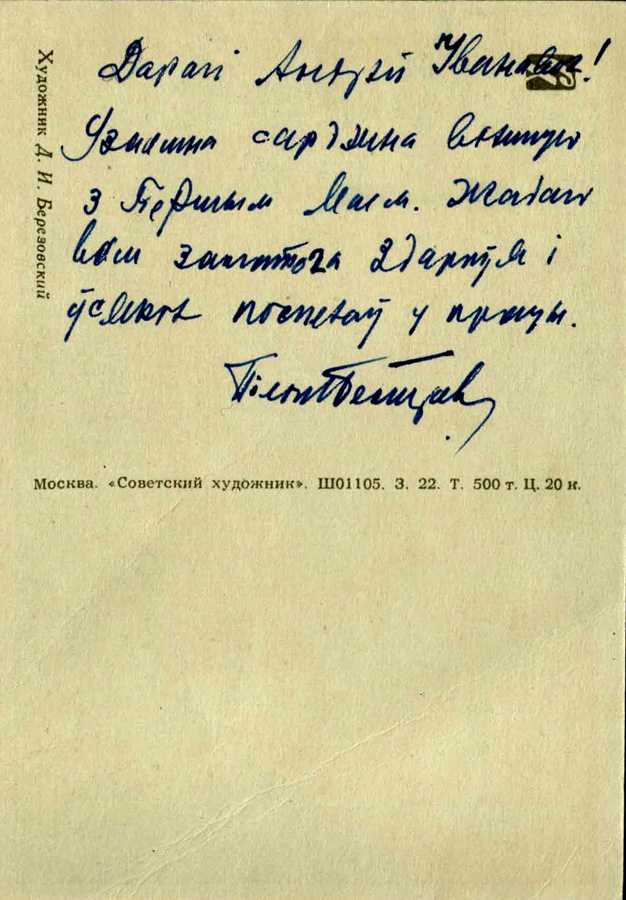 Дарагі Андрэй Іванавіч!
сардэчна віншую
з Першым Маем. Жадаю
Вам здароўя і
ўсякіх поспехаў у працы.
Москва. «Советский художник». Ш01105. З. 22. Т. 500 т. Ц. 20 к.
Художник Д. И. Березовский